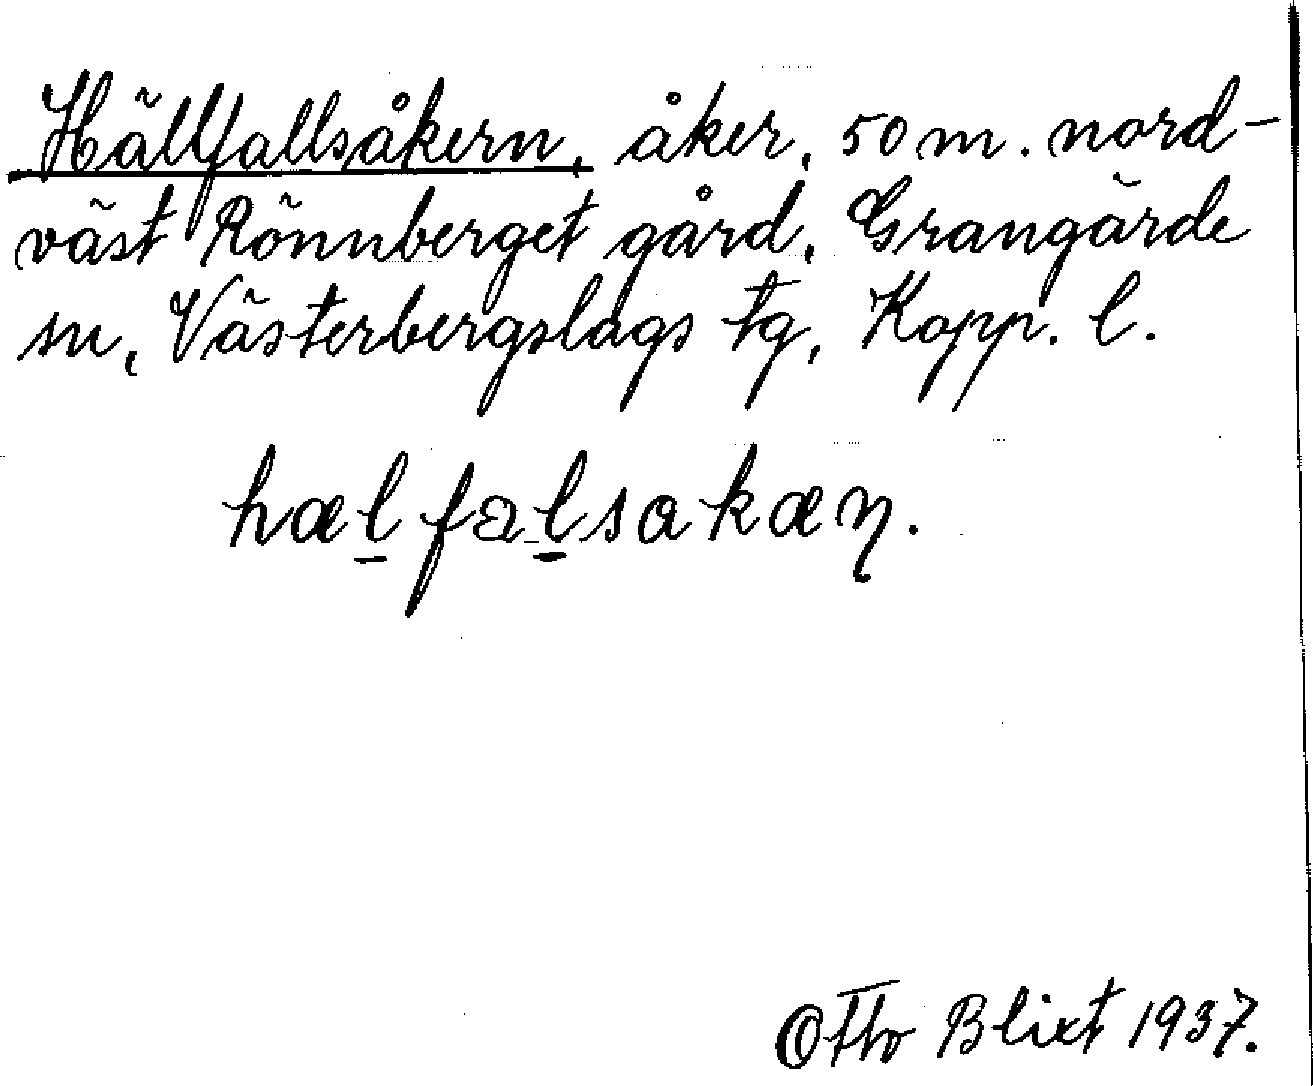 Hällfallsåkern, åker, 50 m. nord-
väst Rönnberget gård, Grangärde
sn, Västerbergslags tg, Kopp. l.
hælfalsakæn.
Otto Blixt 1937.